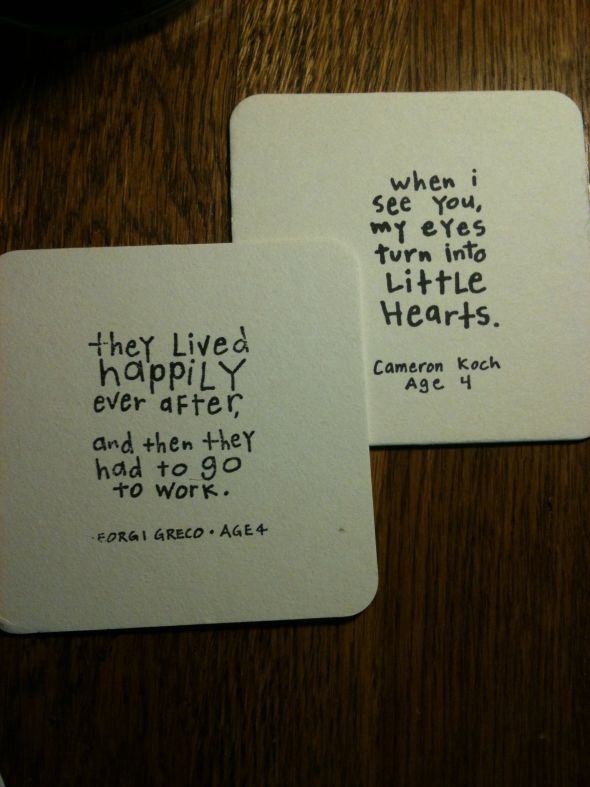 when i
see You,
my eYes
turn into
LittLe
Hearts.
Cameron Koch
Age 4
they Lived
happiLY
ever after,
and then they
had to go
to work.
GRECO • AGE 4